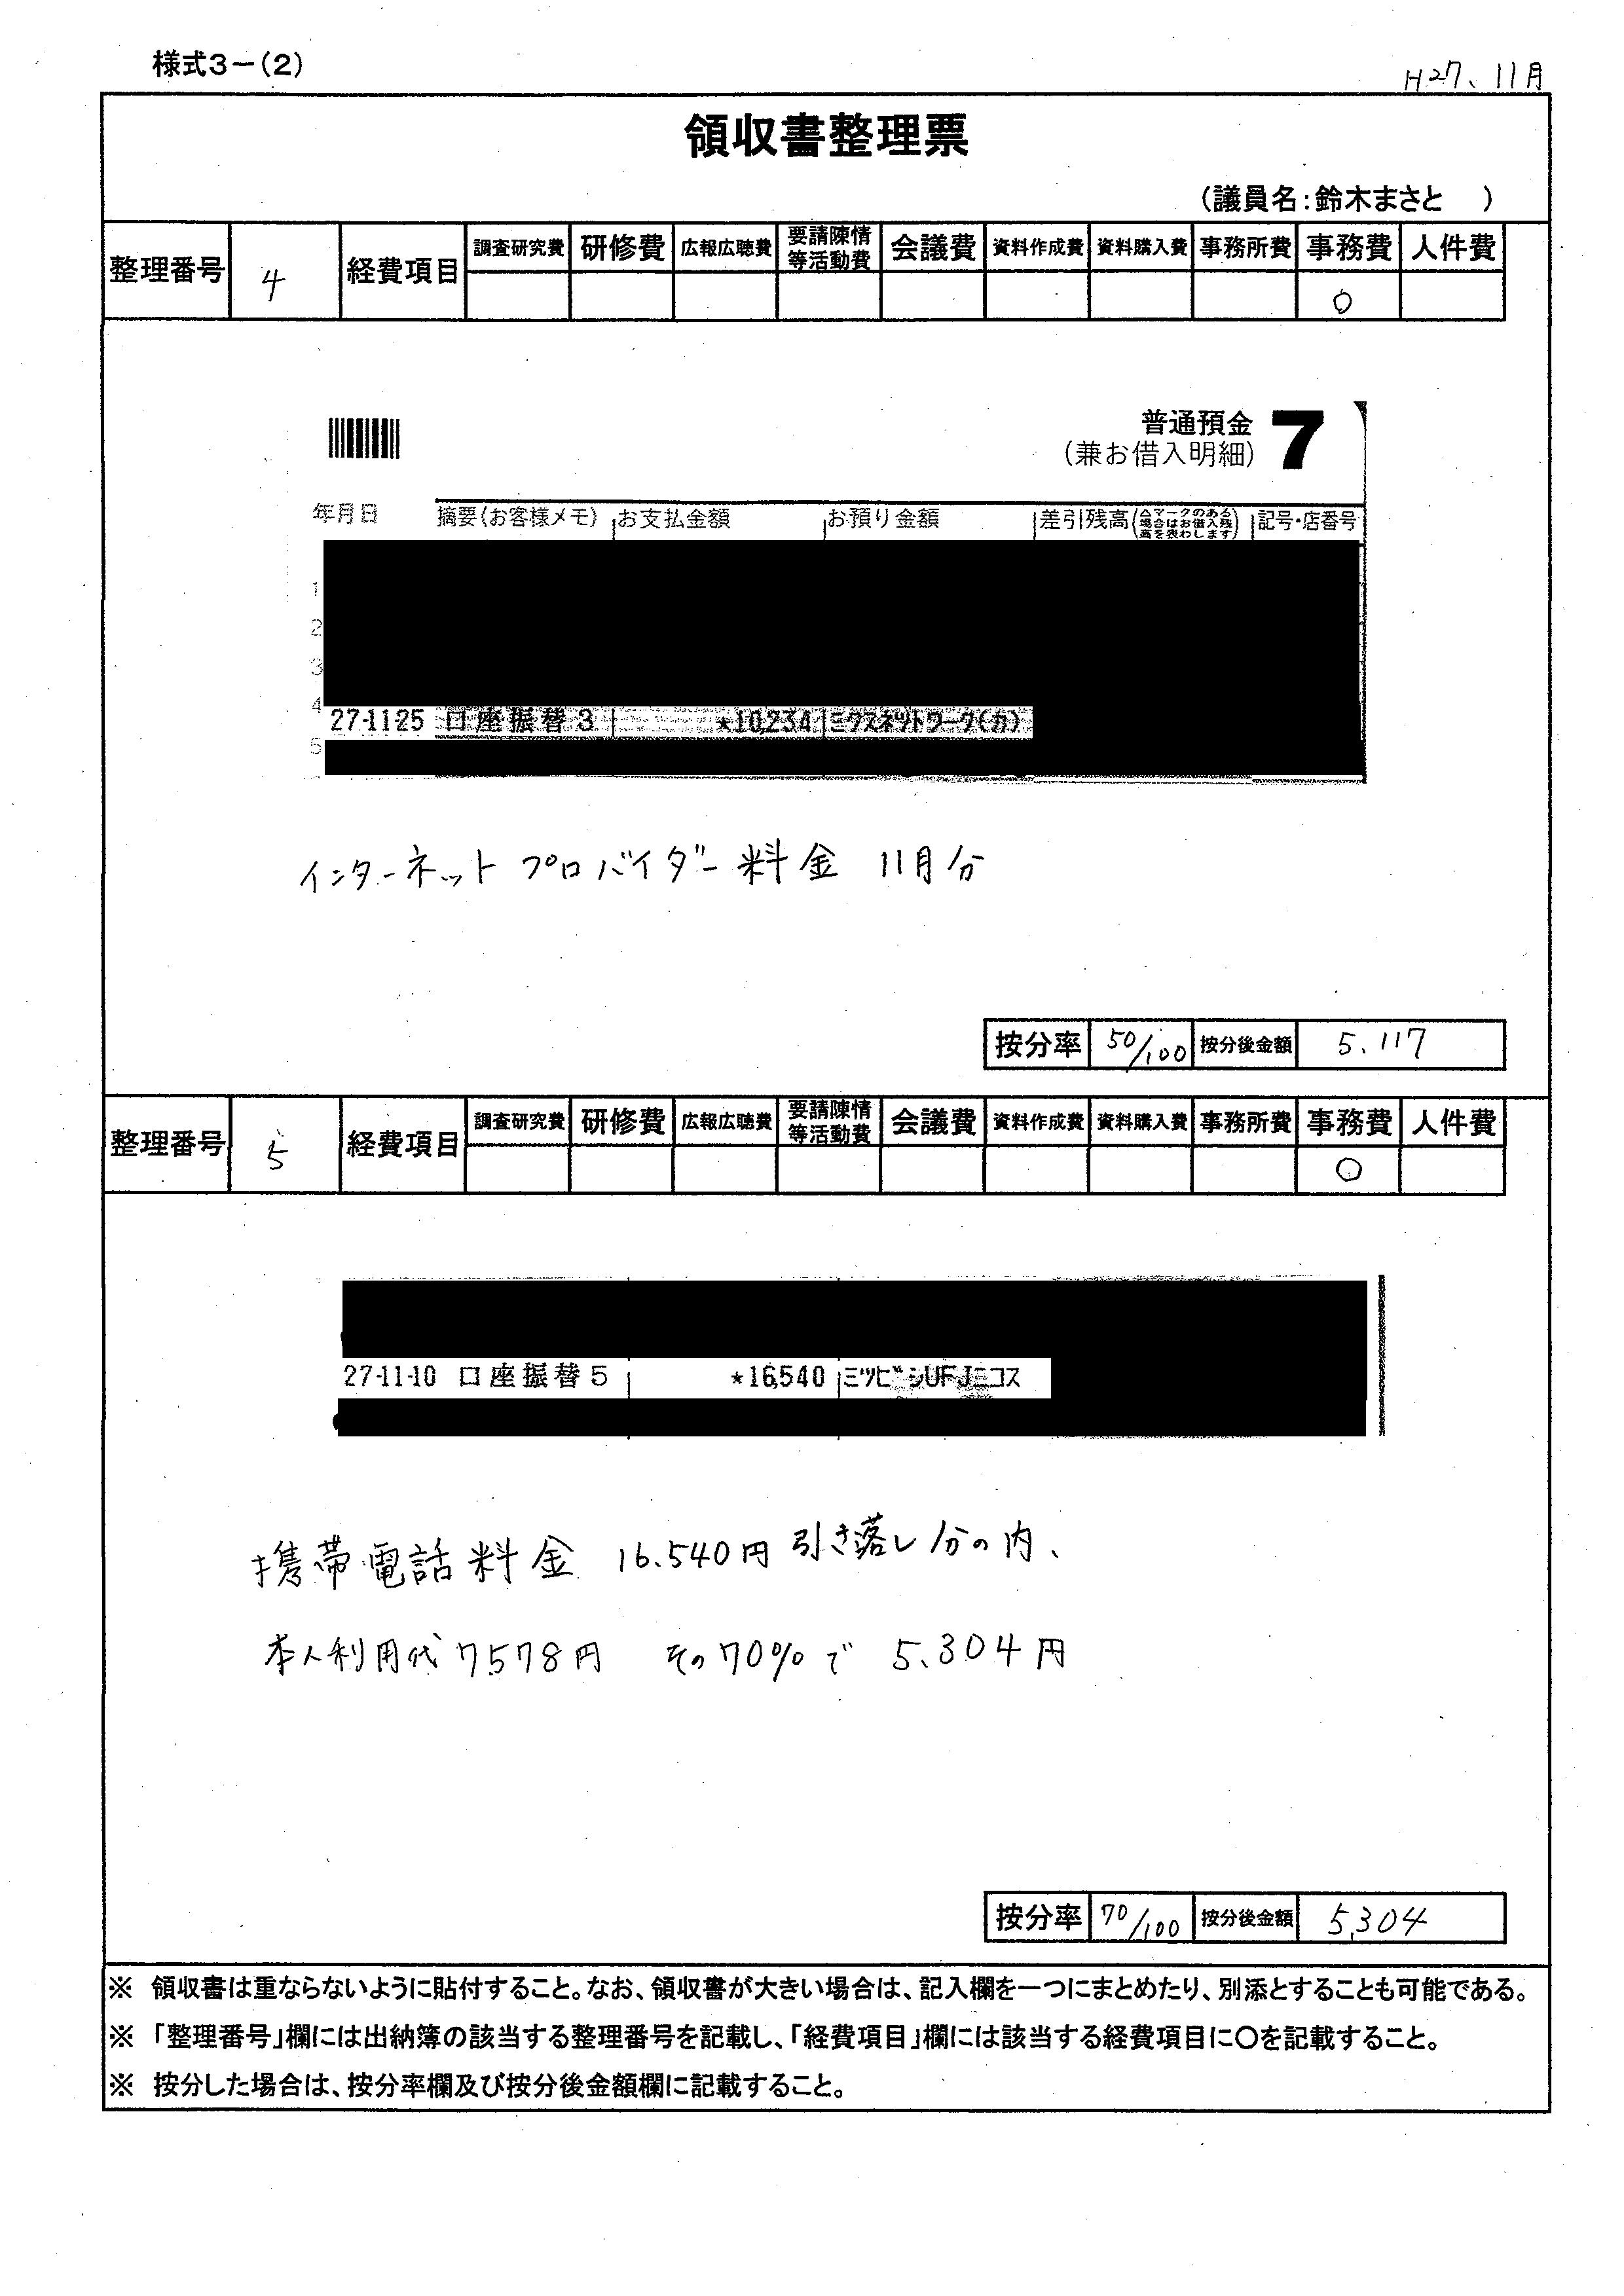 様式3－(2)
H27、11月
領収書整理票
(議員名:鈴木まさと　)
整理番号 4 経費項目 調査研究費 研修費 広報広聴費 要請陳情等活動費 会議費 資料作成費 資料購入費 事務所費 事務費 人件費
○
普通預金 7
(兼お借入明細)
年月日 摘要(お客様メモ) お支払金額 お預り金額 差引残高(△マークのある場合はお借入残高を表わします) 記号・店番号
1
2
3
4
27-11-25 口座振替3 *10,234 ミクスネットワーク(カ)
5
インターネットプロバイダー料金 11月分
按分率 50/100 按分後金額 5.117
整理番号 5 経費項目 調査研究費 研修費 広報広聴費 要請陳情等活動費 会議費 資料作成費 資料購入費 事務所費 事務費 人件費
○
27-11-10 口座振替5 *16,540 ミツビシUFJニコス
携帯電話料金 16.540円引き落し分の内、
本人利用代7578円 その70%で 5.304円
按分率 70/100 按分後金額 5,304
※ 領収書は重ならないように貼付すること。なお、領収書が大きい場合は、記入欄を一つにまとめたり、別添とすることも可能である。
※ 「整理番号」欄には出納簿の該当する整理番号を記載し、「経費項目」欄には該当する経費項目に○を記載すること。
※ 按分した場合は、按分率欄及び按分後金額欄に記載すること。